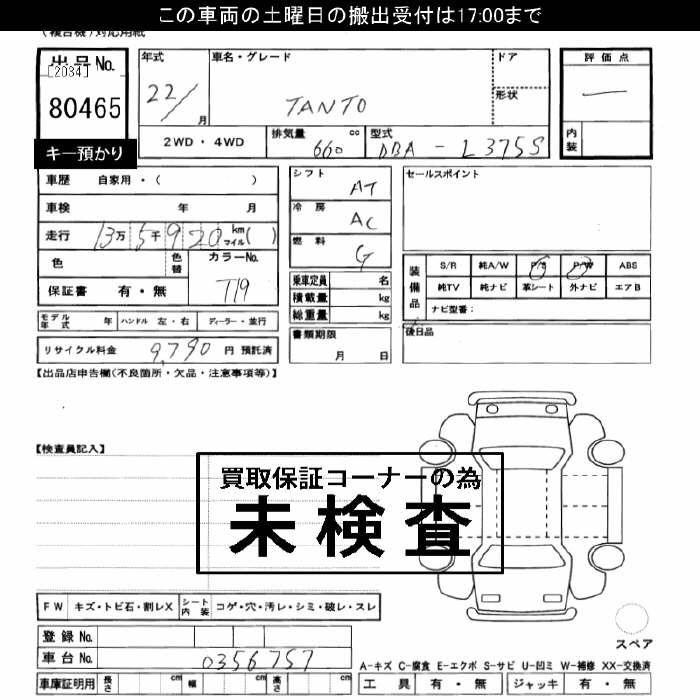 この車両の土曜日の搬出受付は17:00まで
(複合機)対応用紙
出品No.
[2034]
80465
キー預かり
年式
22/
月
車名・グレード
TANTO
ドア
形状
評価点
—
内装
2WD・4WD
排気量
660
cc
型式
DBA - L375S
車歴 自家用・( )
車検 年 月
走行 13万5千920 km マイル( )
色
色替
カラーNo.
T19
保証書 有・無
シフト AT
冷房 AC
燃料 G
乗車定員 名
積載量 kg
総重量 kg
書類期限
月 日
セールスポイント
装備品
S/R 純A/W P/S P/W ABS
純TV 純ナビ 革シート 外ナビ エアB
ナビ型番:
後日品
モデル年式 年 ハンドル 左・右 ディーラー・並行
リサイクル料金 9,790 円 預託済
【出品店申告欄(不良箇所・欠品・注意事項等)】
【検査員記入】
買取保証コーナーの為
未検査
FW キズ・トビ石・割レX シート内装 コゲ・穴・汚レ・シミ・破レ・スレ
登録No.
車台No. 0356757
スペア
A-キズ C-腐食 E-エクボ S-サビ U-凹ミ W-補修 XX-交換済
車庫証明用 長さ cm 幅 cm 高さ cm 工具 有・無 ジャッキ 有・無